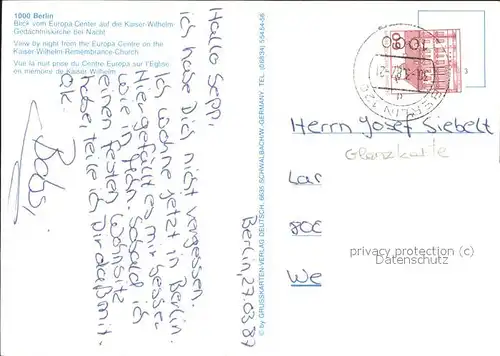 1000 Berlin
Blick vom Europa Center auf die Kaiser-Wilhelm-
Gedächtniskirche bei Nacht
View by night from the Europe Centre on the
Kaiser-Wilhelm-Remembrance-Church
Vue la nuit prise du Centre Europe sur l'Eglise
en mémoire de Kaiser Wilhelm
Berlin, 27.03.87
Hallo Sepp,
ich habe Dich nicht vergessen.
Ich wohne jetzt in Berlin.
Hier gefällt es mir besser
wie in Sobald ich
einen festen Wohnsitz
habe, teile ich Dir daß mit.
Ok.
Bobsi
© by GRUSSKARTEN-VERLAG DEUTSCH, 6635 SCHWALBACH/W.-GERMANY TEL. (06834) 55454-56
BERLIN 120
60
Herrn Josef Siebelt
Glanzkarte
Lar
800
We
privacy protection (c)
Datenschutz